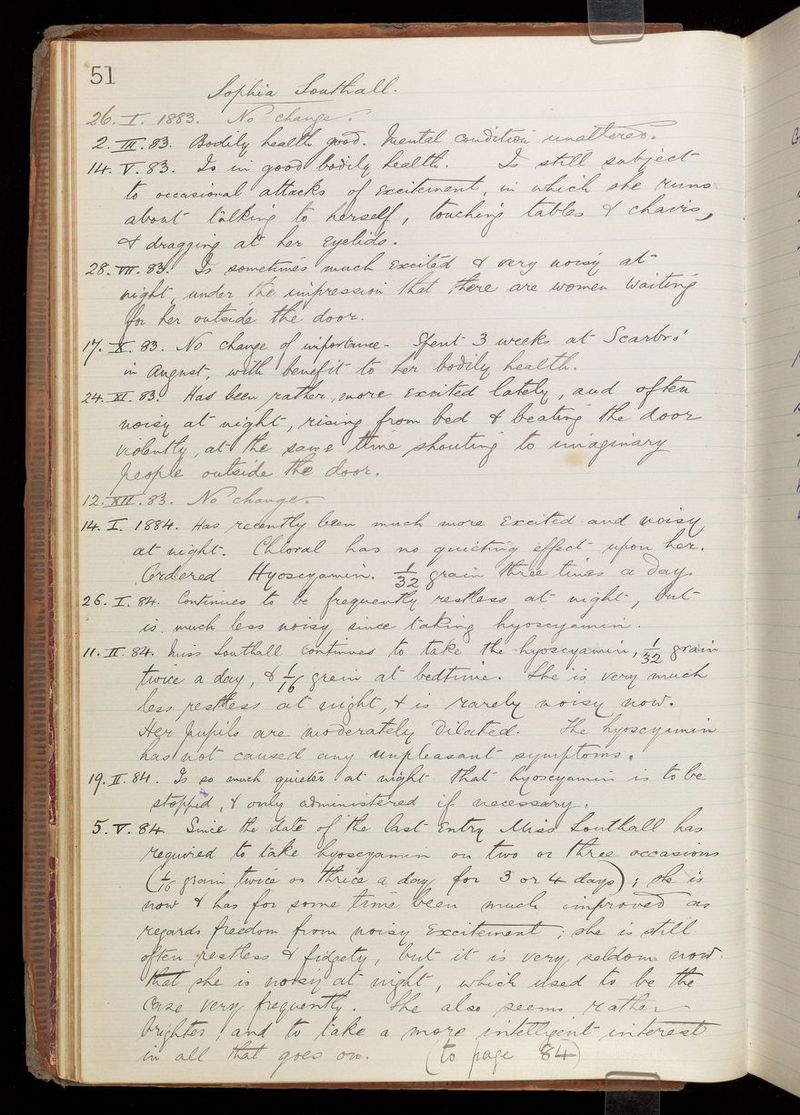 51
Sophia Southall.
26. I. 1883. No change.
2. III. 83. Bodily health good. Mental condition unaltered.
14. V. 83. Is in good bodily health. Is still subject
to occasional attacks of excitement, in which she runs
about talking to herself, touching tables & chairs,
& dragging at her eyelids.
28. VII. 83. Is sometimes much excited & very noisy at
night, under the impression that there are women waiting
for her outside the door.
17. X. 83. No change of importance - Spent 3 weeks at Scarbro'
in August, with benefit to her bodily health.
24. XI. 83. Has been rather more excited lately, and often
noisy at night, rising from bed & beating the door
violently, at the same time shouting to imaginary
people outside the door.
12. XII. 83. No change.
14. I. 1884. Has recently been much more excited and noisy
at night. Chloral has no quieting effect upon her.
Ordered Hyoscyamin. 1/32 grain three times a day.
26. I. 84. Continues to be frequently restless at night, but
is much less noisy since taking hyoscyamin.
11. II. 84. Miss Southall continues to take the hyoscyamin, 1/32 grain
twice a day, & 1/16 grain at bedtime. She is very much
less restless at night, & is rarely noisy now.
Her pupils are moderately dilated. The hyoscyamin
has not caused any unpleasant symptoms.
19. II. 84. Is so much quieter at night that hyoscyamin is to be
stopped, & only administered if necessary.
5. V. 84. Since the date of the last entry Miss Southall has
required to take hyoscyamin on two or three occasions
(1/16 grain twice or thrice a day for 3 or 4 days); she is
now & has for some time been much improved as
regards freedom from noisy excitement; she is still
often restless & fidgety, but it is very seldom now
that she is noisy at night, which used to be the
case very frequently. She also seems rather
brighter, and to take a more intelligent interest
in all that goes on. (to page 84)